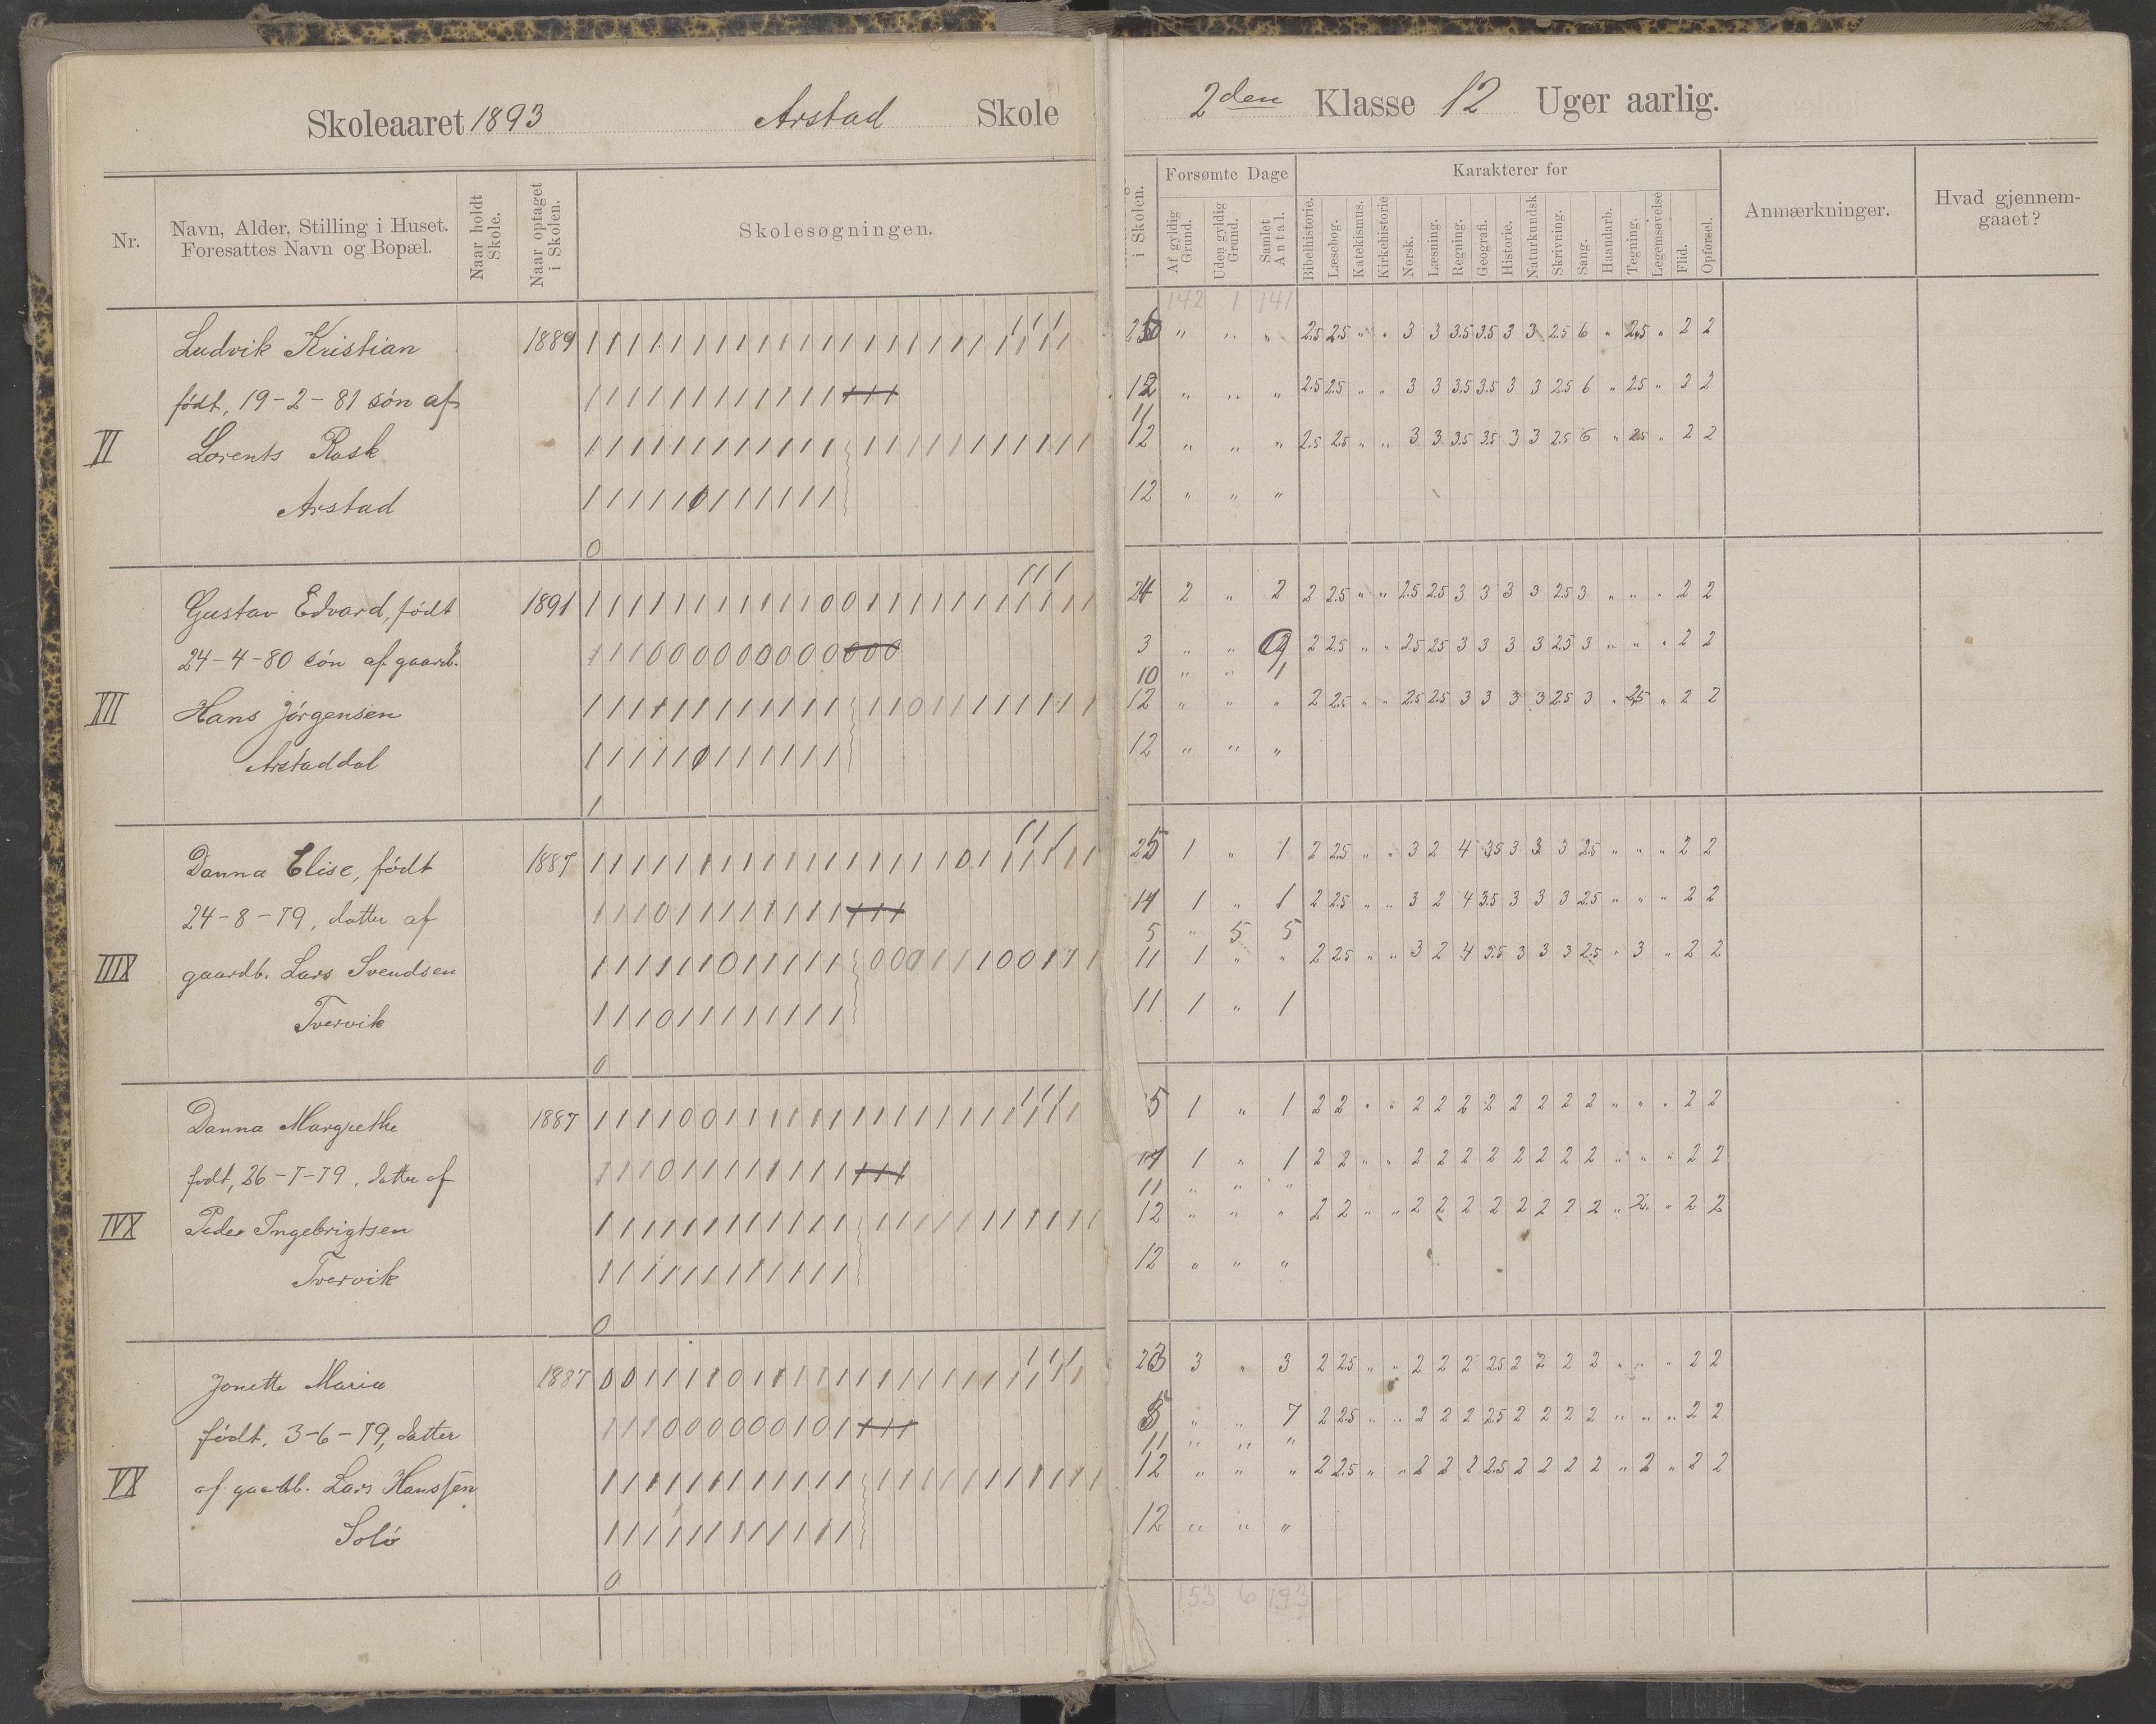 Skoleaaret 1893 Arstad Skole
2den Klasse 12 Uger aarlig.
Nr.
Navn, Alder, Stilling i Huset.
Foresattes Navn og Bopæl.
Naar holdt
Skole.
Naar optaget
i Skolen.
Skolesøgningen.
i Skolen.
Forsømte Dage
Af gyldig
Grund.
Uden gyldig
Grund.
Samlet
Antal.
Karakterer for
Bibelhistorie.
Læsebog.
Katekismus.
Kirkehistorie
Norsk.
Læsning.
Regning.
Geografi.
Historie.
Naturkundsk
Skrivning.
Sang.
Haandarb.
Tegning.
Legemsøvelse
Flid.
Opførsel.
Anmærkninger.
Hvad gjennem-
gaaet?
142 1 141
VI
Ludvik Kristian 1889
født, 19-2-81 søn af
Lorents Rask
Arstad
" " " 2.5 2.5 " " 3 3 3.5 3.5 3 3 2.5 6 " 2.5 " 2 2
12 " " " 2.5 2.5 " " 3 3 3.5 3.5 3 3 2.5 6 " 2.5 " 2 2
11
12 " " " 2.5 2.5 " " 3 3 3.5 3.5 3 3 2.5 6 " 2.5 " 2 2
12 " " "
0
XII
Gustav Edvard, født 1891
24-4-80 søn af gaardb.
Hans Jørgensen
Arstaddal
24 2 " 2 2 2.5 " " 2.5 2.5 3 3 3 3 2.5 3 " " " 2 2
3 " " 9 2 2.5 " " 2.5 2.5 3 3 3 3 2.5 3 " " " 2 2
10 " " 1
12 " " " 2 2.5 " " 2.5 2.5 3 3 3 3 2.5 3 " 2.5 " 2 2
12 " " "
1
IIIX
Danna Elise, født 1887
24-8-79, datter af
gaardb. Lars Svendsen
Tvervik
25 1 " 1 2 2.5 " " 3 2 4 3.5 3 3 3 2.5 " " " 2 2
14 1 " 1 2 2.5 " " 3 2 4 3.5 3 3 3 2.5 " " " 2 2
5 " 5 5
11 1 " " 2 2.5 " " 3 2 4 3.5 3 3 3 2.5 " 3 " 2 2
11 1 " 1
0
IVX
Danna Margrethe 1887
født, 26-7-79, datter af
Peder Ingebrigtsen
Tvervik
5 1 " 1 2 2 " " 2 2 2 2 2 2 2 2 " " " 2 2
14 1 " 1 2 2 " " 2 2 2 2 2 2 2 2 " " " 2 2
11 " " "
12 " " " 2 2 " " 2 2 2 2 2 2 2 2 " 2 " 2 2
12 " " "
0
VX
Jonette Maria 1887
født, 3-6-79, datter
af gaardb. Lars Hanssen
Solø
23 3 " 3 2 2.5 " " 2 2 2 2.5 2 2 2 2 " " " 2 2
" " 7 2 2.5 " " 2 2 2 2.5 2 2 2 2 " " " 2 2
11 " " "
12 " " " 2 2.5 " " 2 2 2 2.5 2 2 2 2 " 2 " 2 2
12 " " "
0
153 6 193